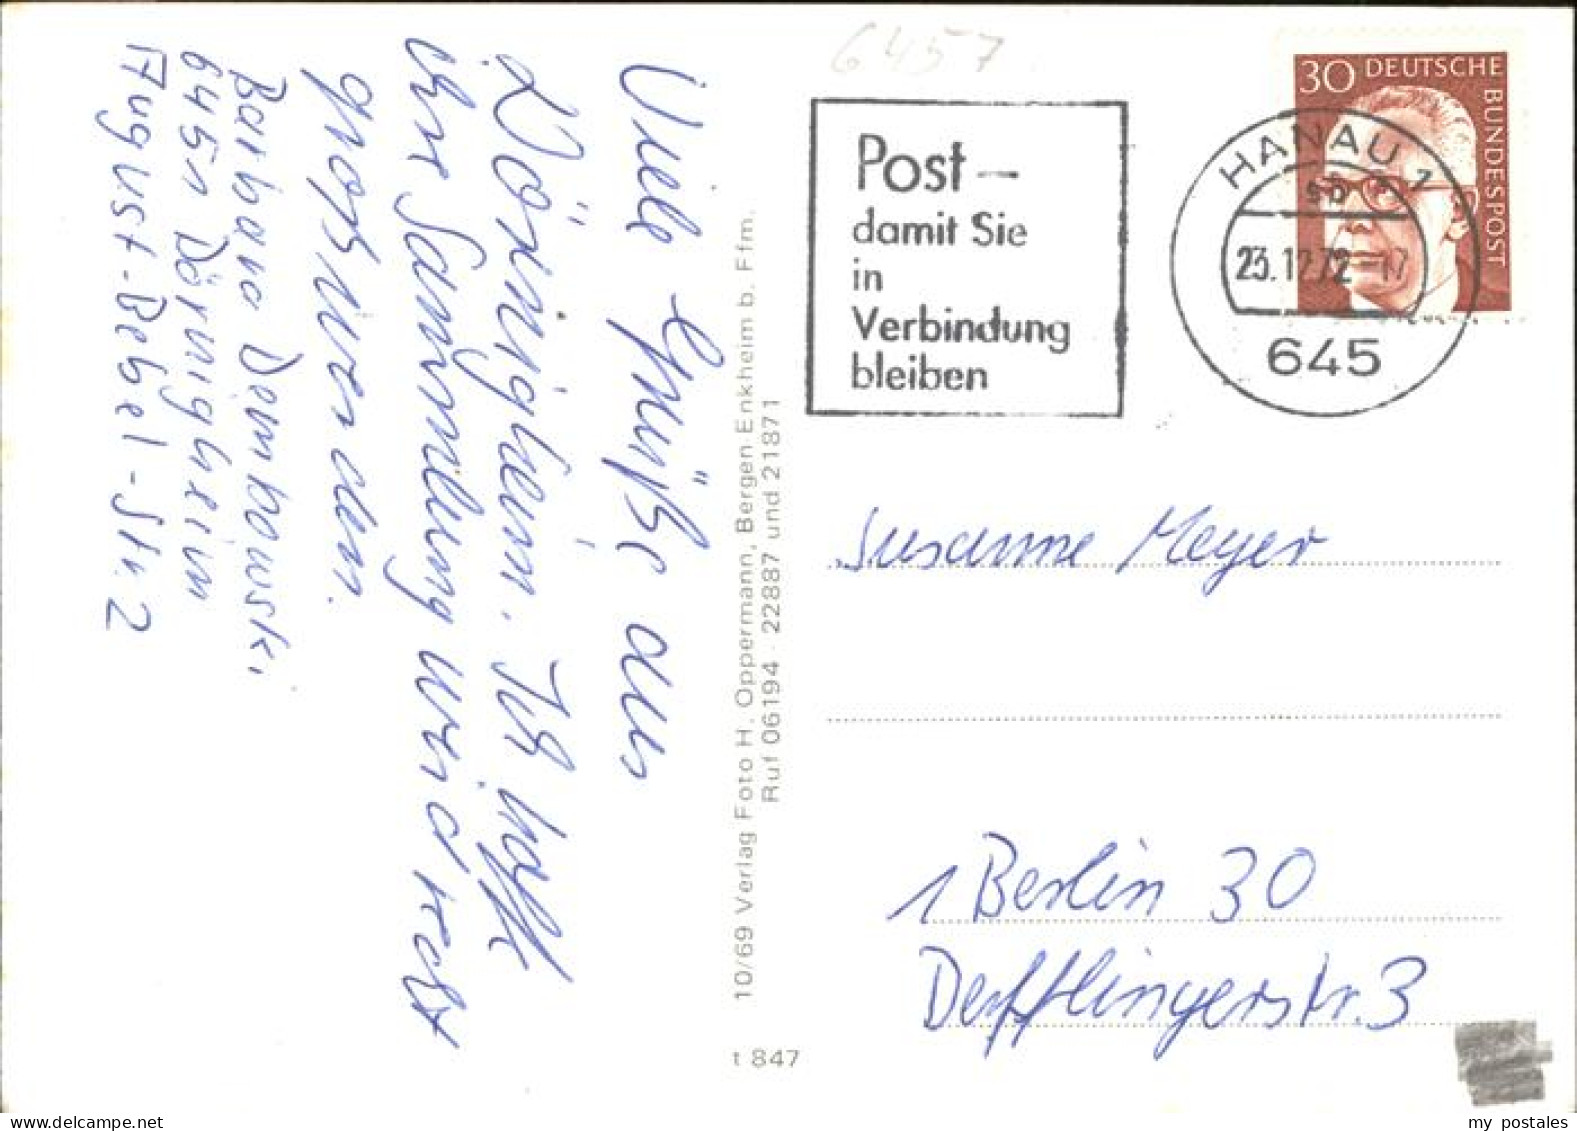 Viele Grüße aus
Dörnigheim. Ich hoffe
ihre Sammlung wird recht
groß werden.
Barbara Dembowski,
6451 Dörnigheim
August-Bebel-Str. 2
10/69 Verlag Foto H. Oppermann, Bergen-Enkheim b. Ffm.
Ruf 06194 - 22887 und 21871
t 847
6457
Post –
damit Sie
in
Verbindung
bleiben
30 DEUTSCHE
BUNDESPOST
HANAU 1
sb
23.12.72-17
645
Susanne Meyer
1 Berlin 30
Derfflingerstr. 3
my postales